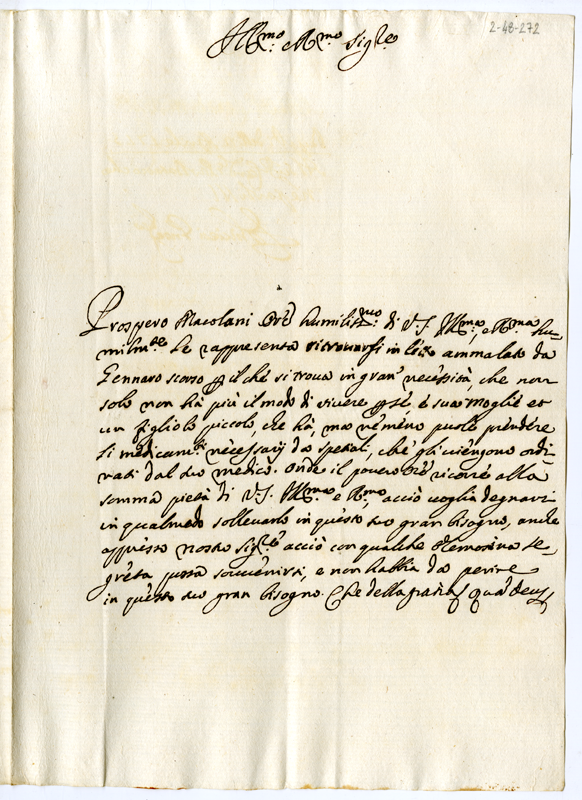 2-48-272
Ill:mo e R:mo Sig:re
Prospero Macolani Ore humiliss:mo di V.S. Ill:ma, e R:ma hu-
milm:te Le rappresenta ritrovarsi in letto ammalato da
Gennaro scorso p il che si trova in gran necessità, che non
solo non hà più il modo di vivere p sé, e sua moglie et
un figliolo piccolo che hà, ma ne meno puole prendere
li medicam:ti necessarij da spetiali, che gli vengono ordi-
nati dal suo medico. Onde il povero Ore ricorre alla
somma pietà di V.S. Ill:ma e R:ma, acciò voglia degnarsi
in qualmodo sollevarlo in questo suo gran bisogno, anche
appresso nostro Sig:re acciò con qualche elemosina se-
greta possa souvenirsi, e non habbia da perire
in questo suo gran bisogno. Che della gratia quā Deus